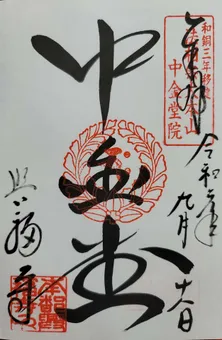 奉拝
和銅三年移
山
中金堂院
令和元年
九月
十六日
中金堂
興福寺